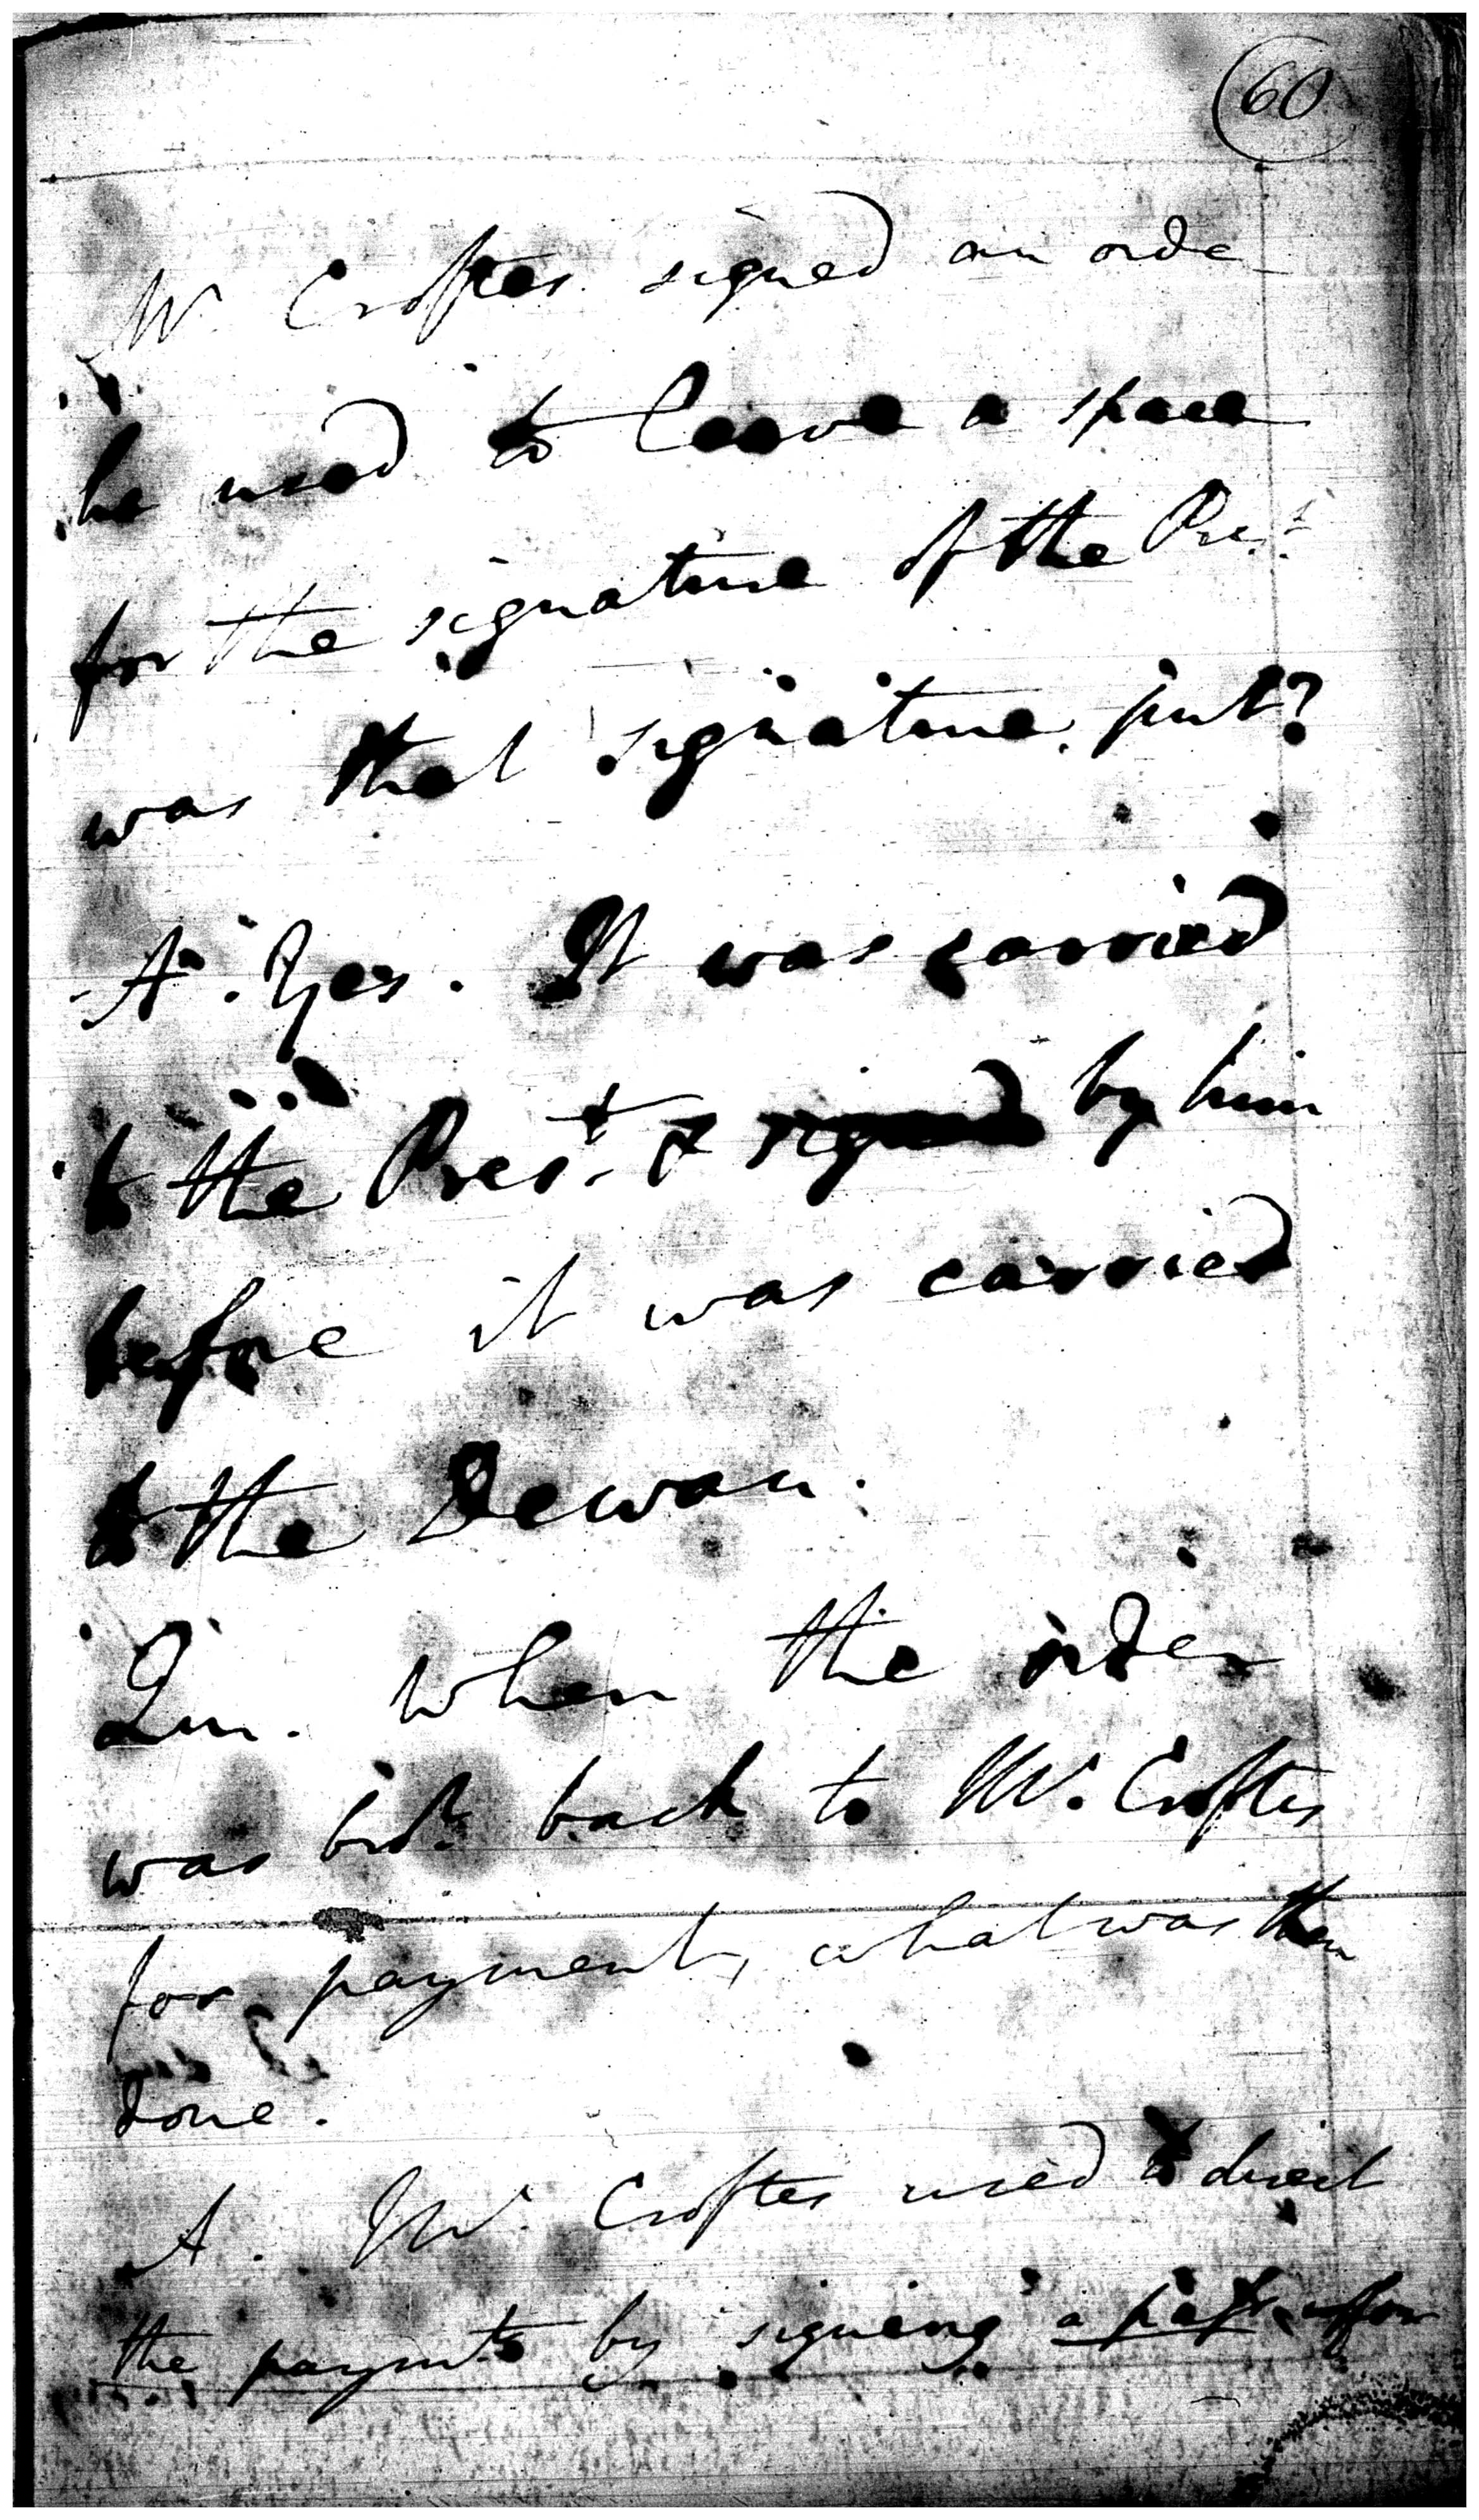 60
Mr. Croftes signed an orde
he used to leave a space
for the signature of the Prest.
was that signature put?
A. Yes. It was carried
to the Prest. & signed by him
before it was carried
to the Dewan.
Qu. When the order
was brot. back to Mr. Croftes
for payment, what was then
done.
A. Mr. Croftes used to direct
the paymts by signing a